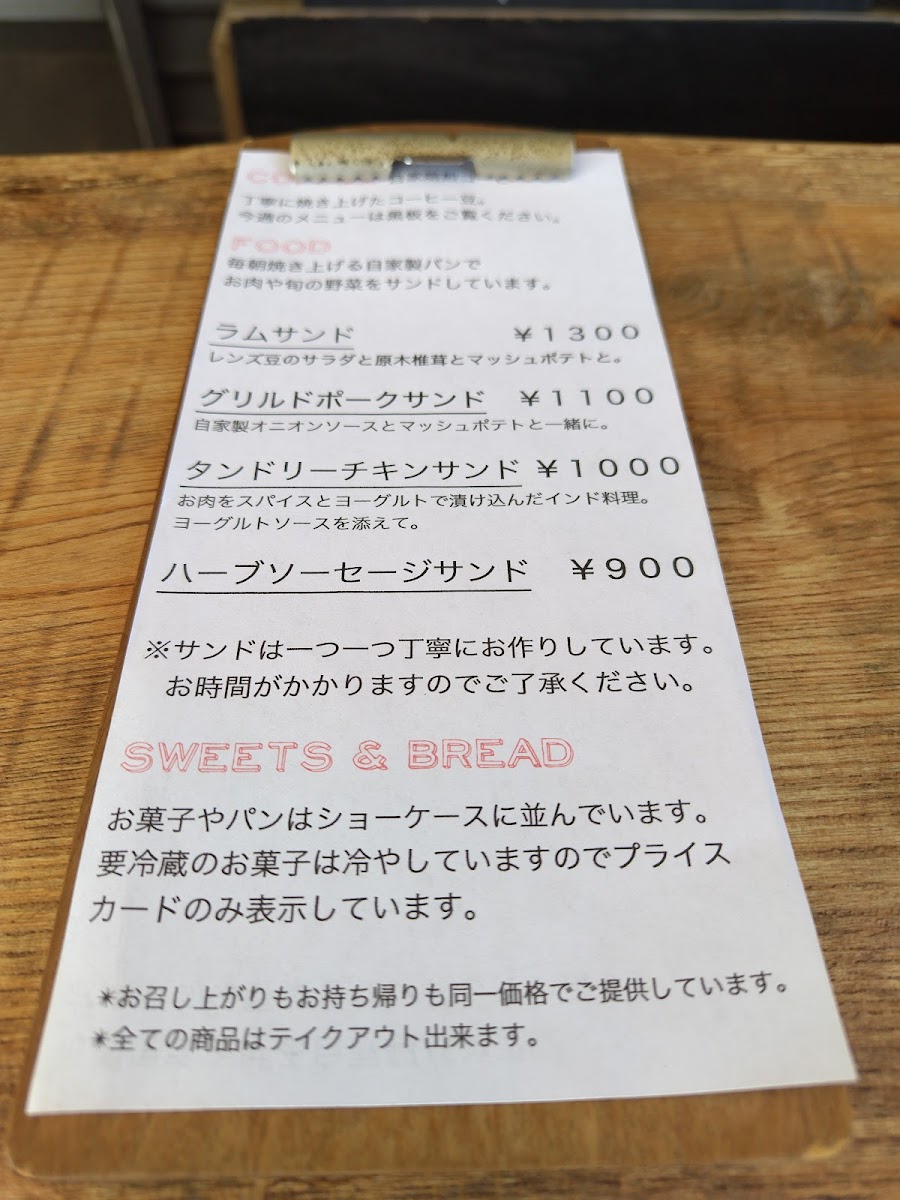 丁寧に焼き上げたコーヒー豆。
今週のメニューは黒板をご覧ください。
FOOD
毎朝焼き上げる自家製パンで
お肉や旬の野菜をサンドしています。
ラムサンド ￥１３００
レンズ豆のサラダと原木椎茸とマッシュポテトと。
グリルドポークサンド ￥１１００
自家製オニオンソースとマッシュポテトと一緒に。
タンドリーチキンサンド ￥１０００
お肉をスパイスとヨーグルトで漬け込んだインド料理。
ヨーグルトソースを添えて。
ハーブソーセージサンド ￥９００
※サンドは一つ一つ丁寧にお作りしています。
お時間がかかりますのでご了承ください。
SWEETS & BREAD
お菓子やパンはショーケースに並んでいます。
要冷蔵のお菓子は冷やしていますのでプライス
カードのみ表示しています。
*お召し上がりもお持ち帰りも同一価格でご提供しています。
*全ての商品はテイクアウト出来ます。